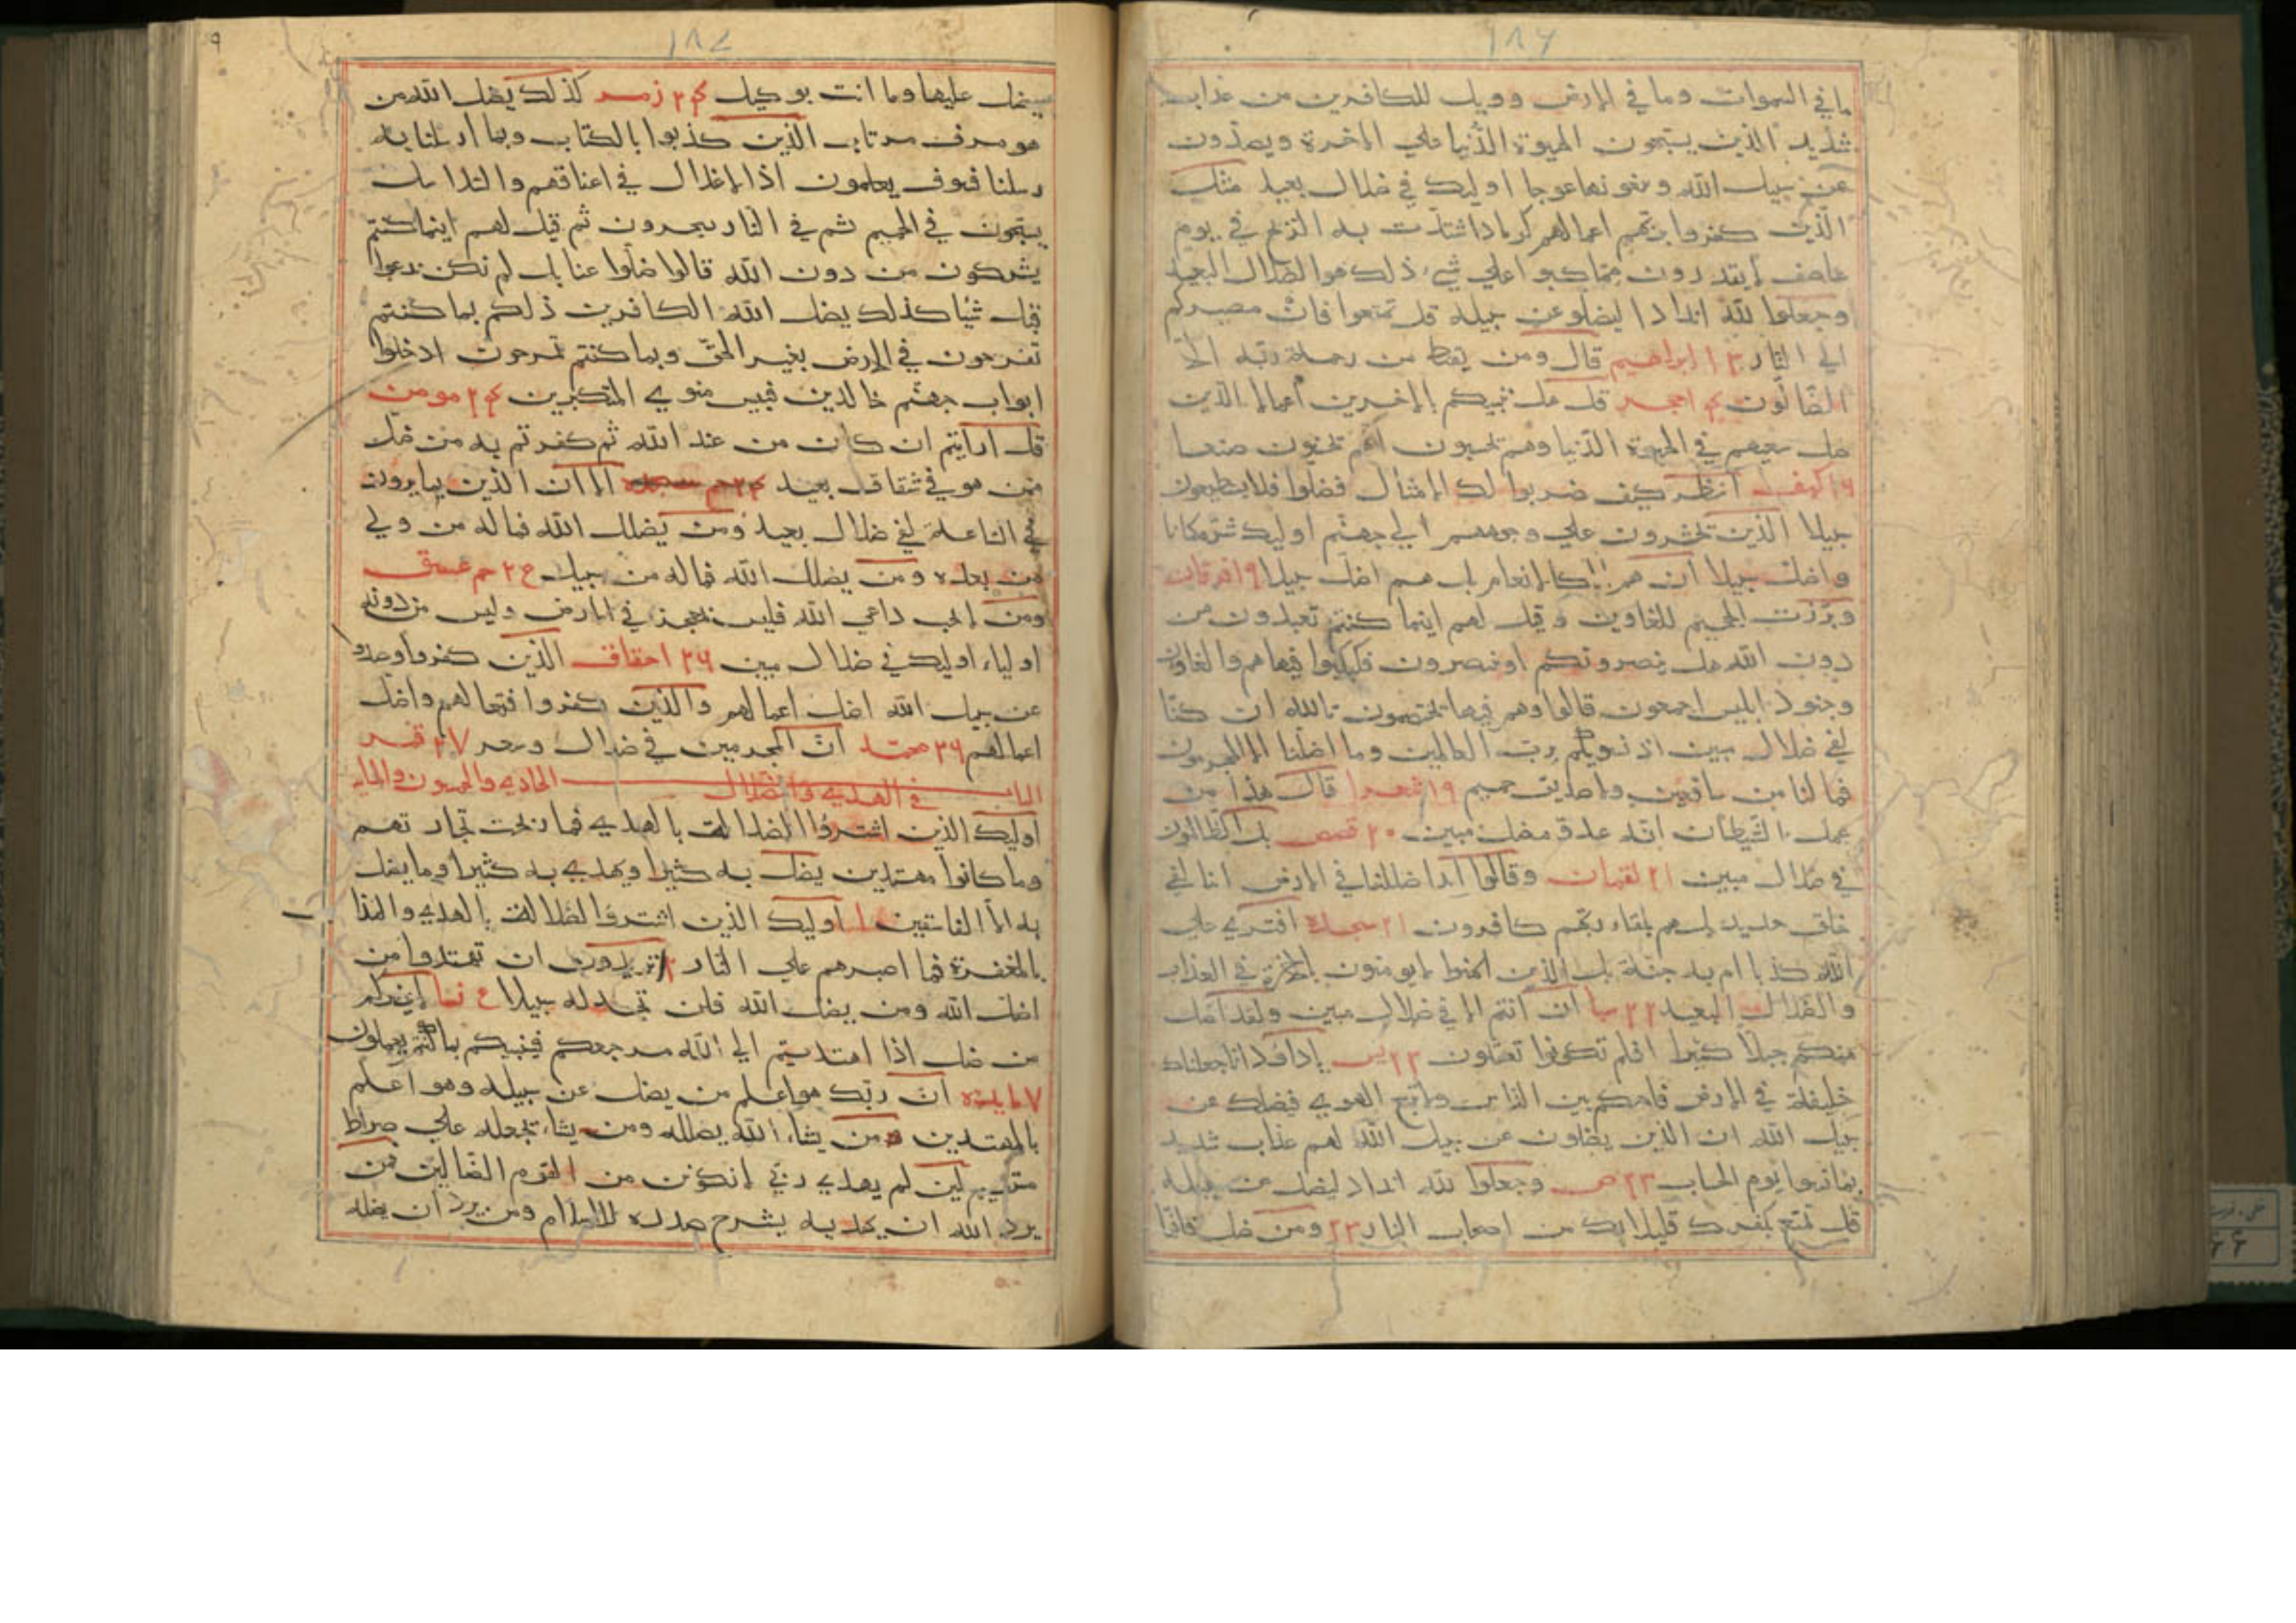 ١٨٦
ما في السموات وما في الارض وويل للكافرين من عذاب
شديد الذين يستحبون الحيوة الدنيا علي الاخرة ويصدون
عن سبيل الله ويبغونها عوجا اوليك في ضلال بعيد مثل
الذين كفروا بربهم اعمالهم كرماد اشتدت به الريح في يوم
عاصف لايقدرون مما كسبوا علي شيء ذلك هو الضلال البعيد
وجعلوا لله اندادا ليضلوا عن سبيله قل تمتعوا فان مصيركم
الي النار ١٣ ابراهيم قال ومن يقنط من رحمة ربه الا
الضالون ١٤ حجر قل هل ننبيكم بالاخسرين اعمالا الذين
ضل سعيهم في الحيوة الدنيا وهم يحسبون انهم يحسنون صنعا
١٦ كهف انظر كيف ضربوا لك الامثال فضلوا فلا يستطيعون
سبيلا الذين يحشرون علي وجوههم الي جهنم اوليك شر مكانا
واضل سبيلا ان هم الا كالانعام بل هم اضل سبيلا ١٩ فرقان
وبرزت الجحيم للغاوين وقيل لهم اينما كنتم تعبدون من
دون الله هل ينصرونكم او ينتصرون فكبكبوا فيها هم والغاون
وجنود ابليس اجمعون قالوا وهم فيها يختصمون تالله ان كنا
لفي ضلال مبين اذ نسويكم برب العالمين وما اضلنا الا المجرمون
فما لنا من شافعين ولا صديق حميم ١٩ شعرا قال هذا من
عمل الشيطان انه عدو مضل مبين ٢٠ قصص بل الظالمون
في ضلال مبين ٢١ لقمان وقالوا ءاذا ضللنا في الارض انا لفي
خلق جديد بل هم بلقاء ربهم كافرون ٢١ سجده افتري علي
الله كذبا ام به جنة بل الذين لايومنون بالاخرة في العذاب
والضلال البعيد ٢٢ سبا ان انتم الا في ضلال مبين ولقد اضل
منكم جبلا كثيرا افلم تكونوا تعقلون ٢٣ يس ياداود انا جعلناك
خليفة في الارض فاحكم بين الناس ولا تتبع الهوي فيضلك عن
سبيل الله ان الذين يضلون عن سبيل الله لهم عذاب شديد
بما نسوا يوم الحساب ٢٣ ص وجعلوا لله انداد ليضل عن سبيله
قل تمتع بكفرك قليلا انك من اصحاب النار ٢٣ ومن ضل فانما
١٨٧
يضل عليها وما انت بوكيل ٢٤ زمر كذلك يضل الله من
هو مسرف مرتاب الذين كذبوا بالكتاب وبما ارسلنا به
رسلنا فسوف يعلمون اذا الاغلال في اعناقهم والسلاسل
يسحبون في الحميم ثم في النار يسجرون ثم قيل لهم اينما كنتم
يشركون من دون الله قالوا ضلوا عنا بل لم نكن ندعوا
قبل شيئا كذلك يضل الله الكافرين ذلكم بما كنتم
تفرحون في الارض بغير الحق وبما كنتم تمرحون ادخلوا
ابواب جهنم خالدين فبيس مثوي المتكبرين ٢٤ مومن
قل ارايتم ان كان من عند الله ثم كفرتم به من ضل
ممن هو في شقاق بعيد ٢٤ حم سجده الا ان الذين يمارون
في الساعة لفي ضلال بعيد ومن يضلل الله فما له من ولي
من بعده ومن يضلل الله فما له من سبيل ٢٤ حم عسق
ومن لايجب داعي الله فليس بمعجز في الارض وليس من دونه
اولياء اوليك في ضلال مبين ٢٦ احقاف الذين كفروا وصدوا
عن سبيل الله اضل اعمالهم والذين كفروا فتعسا لهم واضل
اعمالهم ٢٦ محمد ان المجرمين في ضلال وسعر ٢٧ قمر
الباب الحادي والخمسون والمايه في الهدي والضلال
اوليك الذين اشتروا الضلالة بالهدي فما ربحت تجارتهم
وما كانوا مهتدين يضل به كثيرا ويهدي به كثيرا وما يضل
به الا الفاسقين ١ اوليك الذين اشتروا الضلالة بالهدي والعذاب
بالمغفرة فما اصبرهم علي النار ٢ اتريدون ان تهتدوا من
اضل الله ومن يضلل الله فلن تجد له سبيلا ٤ نسا لايضركم
من ضل اذا اهتديتم الي الله مرجعكم فينبيكم بما كنتم تعملون
٧ مايده ان ربك هو اعلم من يضل عن سبيله وهو اعلم
بالمهتدين من يشاء الله يضلله ومن يشاء يجعله علي صراط
مستقيم لين لم يهدني ربي لاكونن من القوم الضالين فمن
يرد الله ان يهديه يشرح صدره للاسلام ومن يرد ان يضله